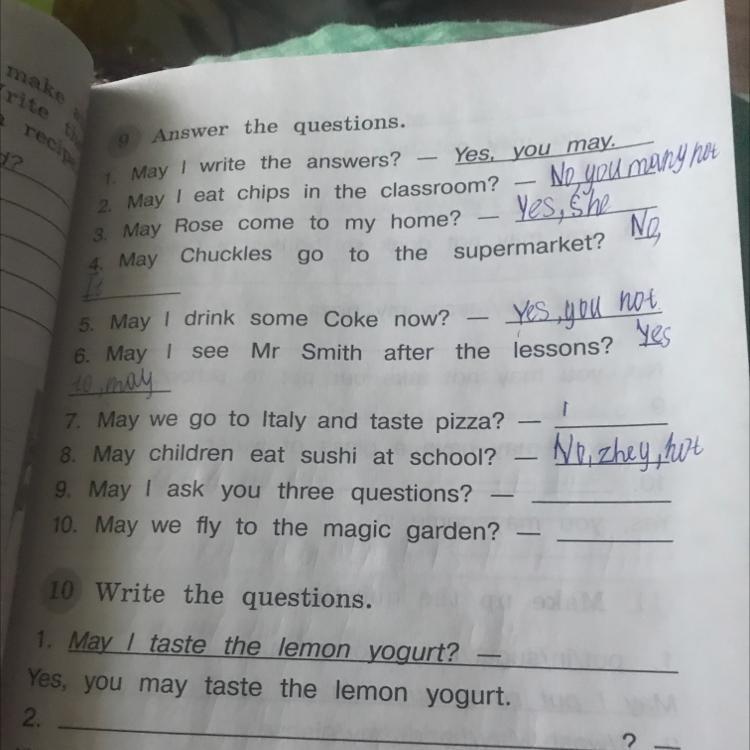 make a
rite th
a recip
d?
9 Answer the questions.
1. May I write the answers? — Yes, you may.
2. May I eat chips in the classroom? — No you many not
3. May Rose come to my home? — Yes, she
4. May Chuckles go to the supermarket? No,
5. May I drink some Coke now? — Yes, you not
6. May I see Mr Smith after the lessons? Yes
to, may
7. May we go to Italy and taste pizza? — I
8. May children eat sushi at school? — No, zhey, not
9. May I ask you three questions? —
10. May we fly to the magic garden? —
10 Write the questions.
1. May I taste the lemon yogurt? —
Yes, you may taste the lemon yogurt.
2. ?